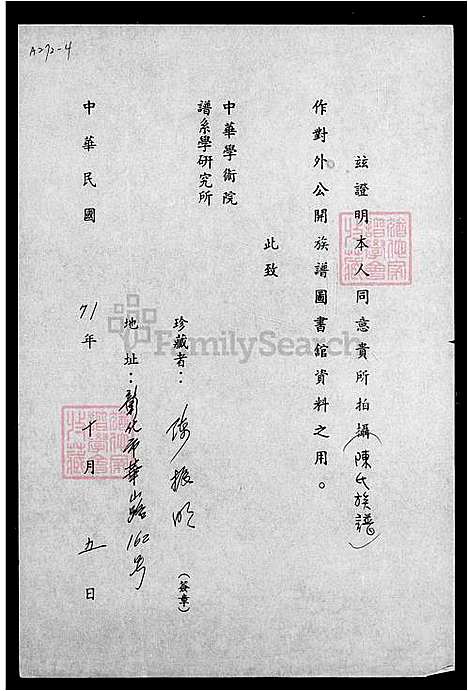 A272-4
茲證明本人同意貴所拍攝(陳氏族譜)
作對外公開族譜圖書館資料之用。
此致
中華學術院
譜系學研究所
珍藏者：陳振明(簽章)
地址：彰化市華山路162号
中華民國71年十月五日
FamilySearch